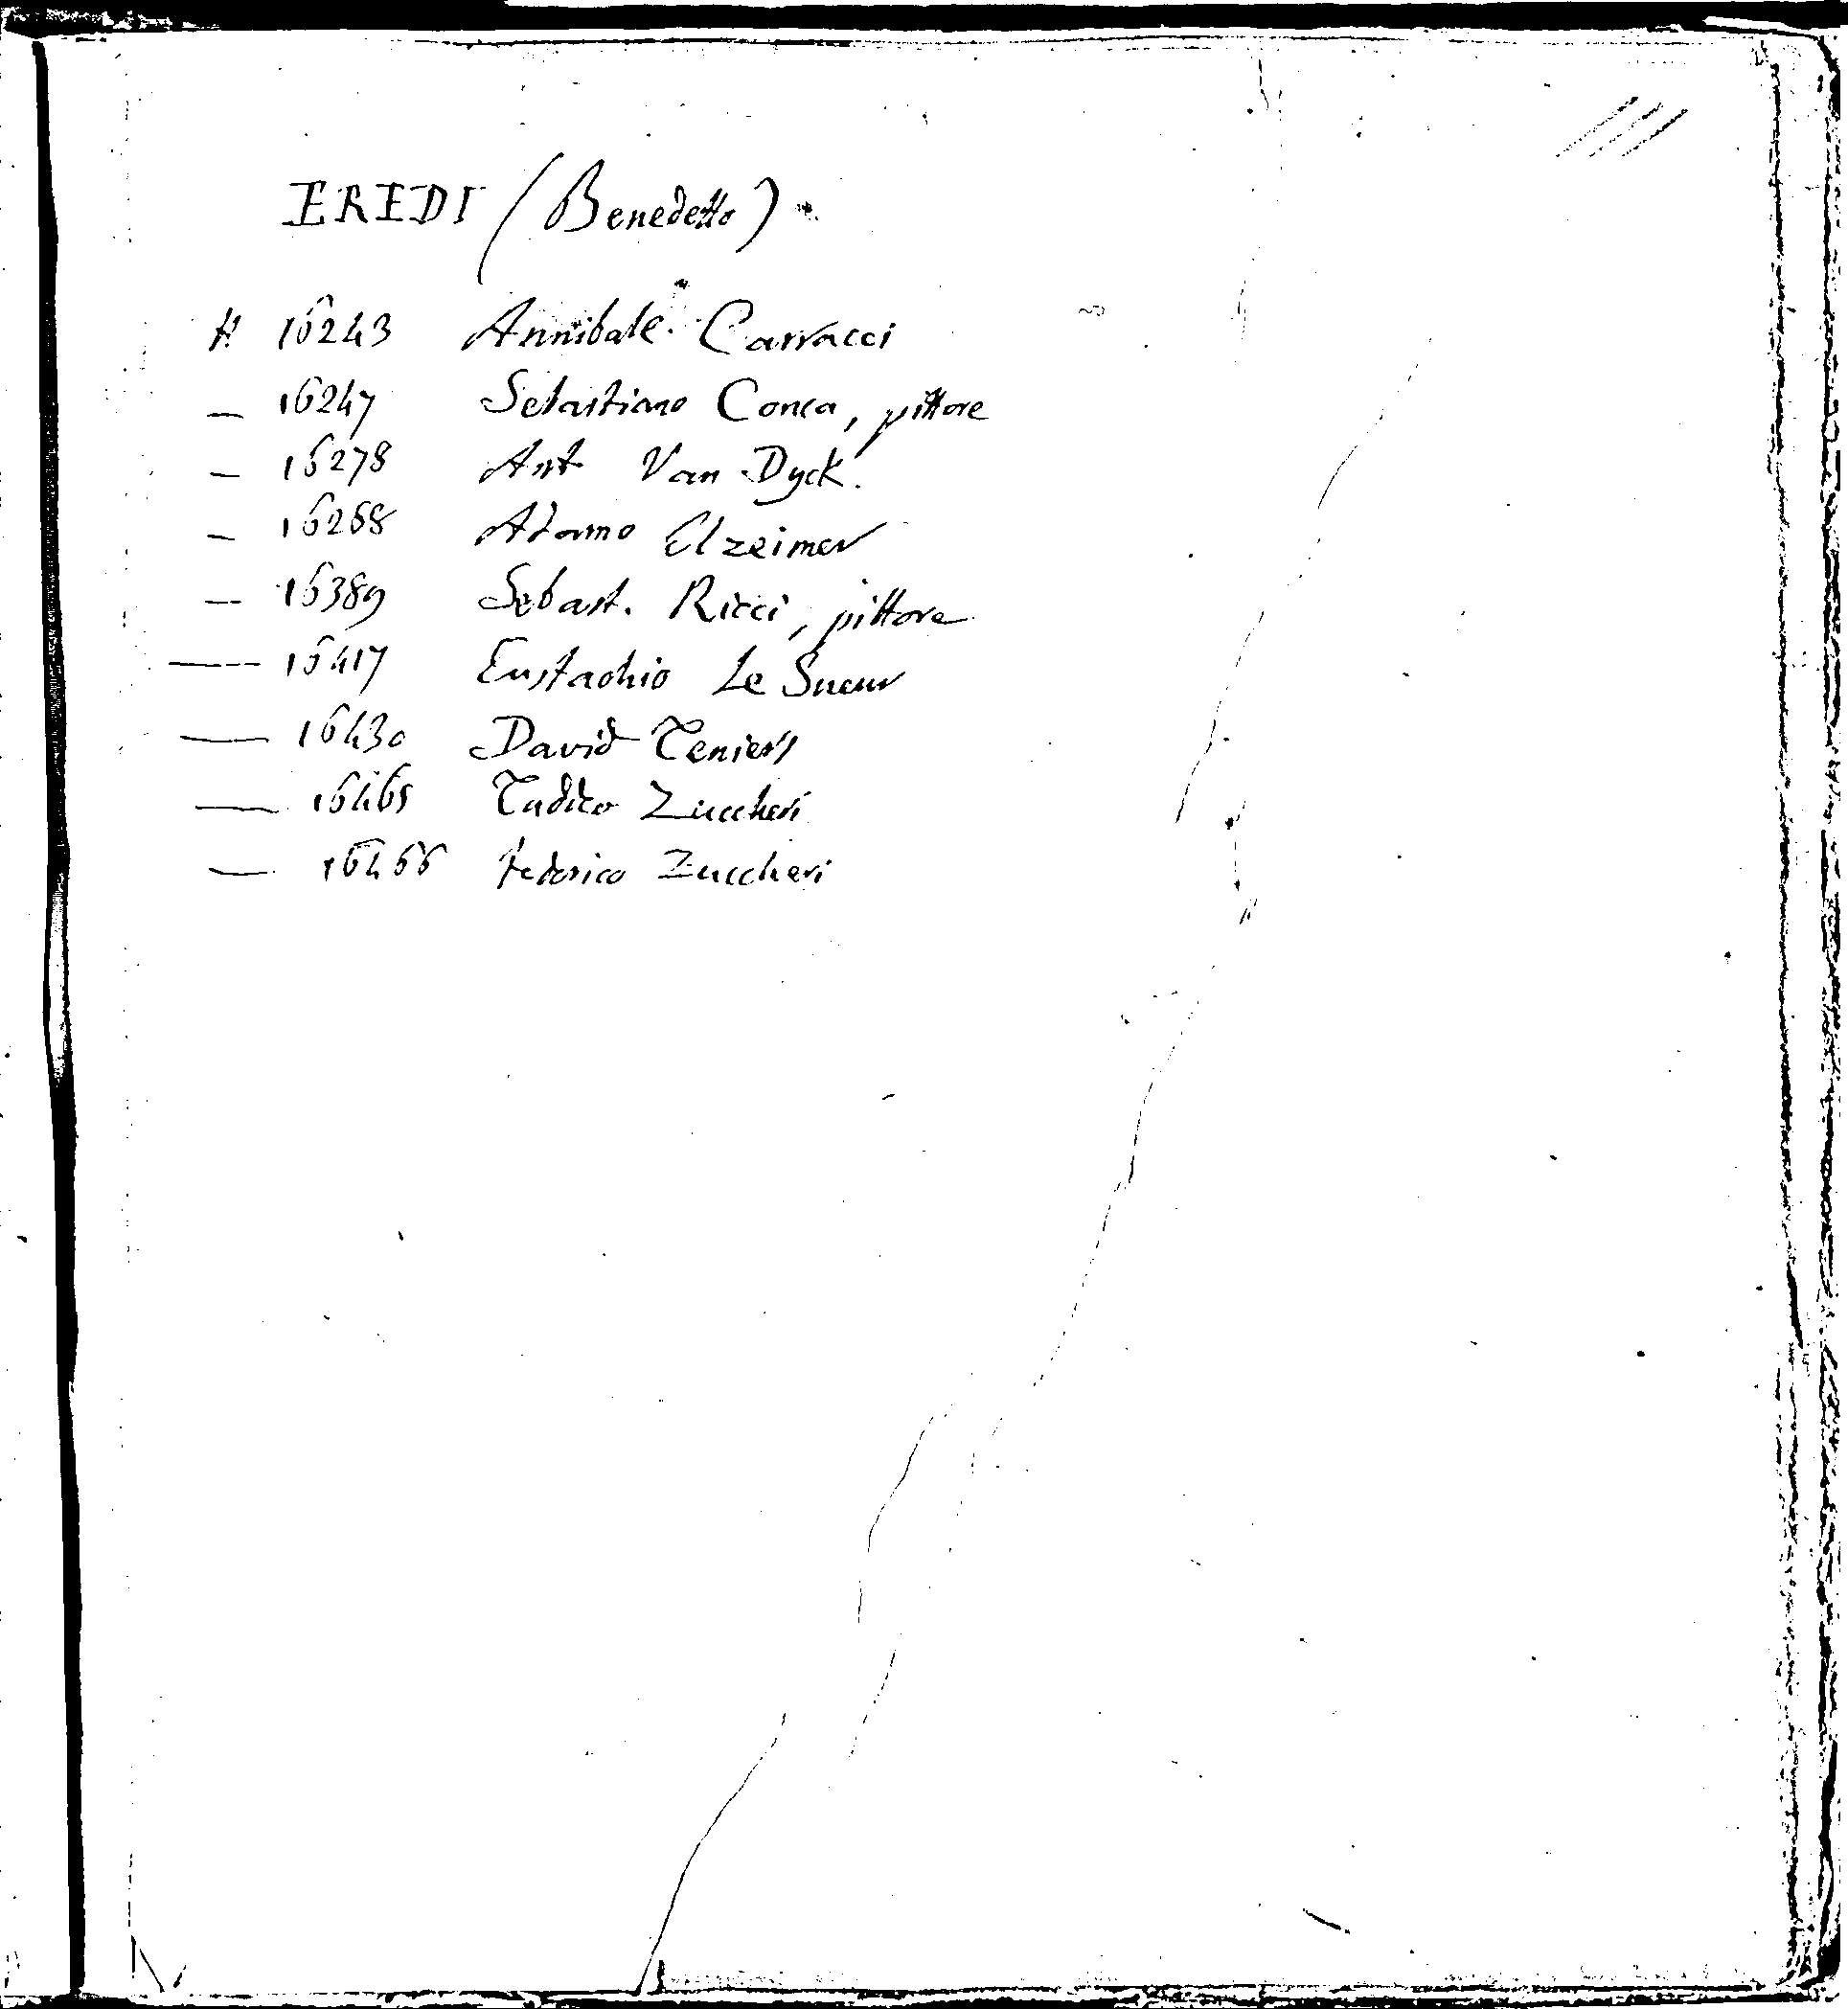 EREDI (Benedetto).
H. 16243 Annibale Carracci
— 16247 Sebastiano Conca, pittore
— 16278 Ant Van Dyck.
— 16268 Adamo Elzeimer
— 16389 Sebast. Ricci, pittore
— 16417 Eustachio Le Sueur
— 16430 David Teniers
— 16465 Tadeo Zuccheri
— 16466 Federico Zuccheri